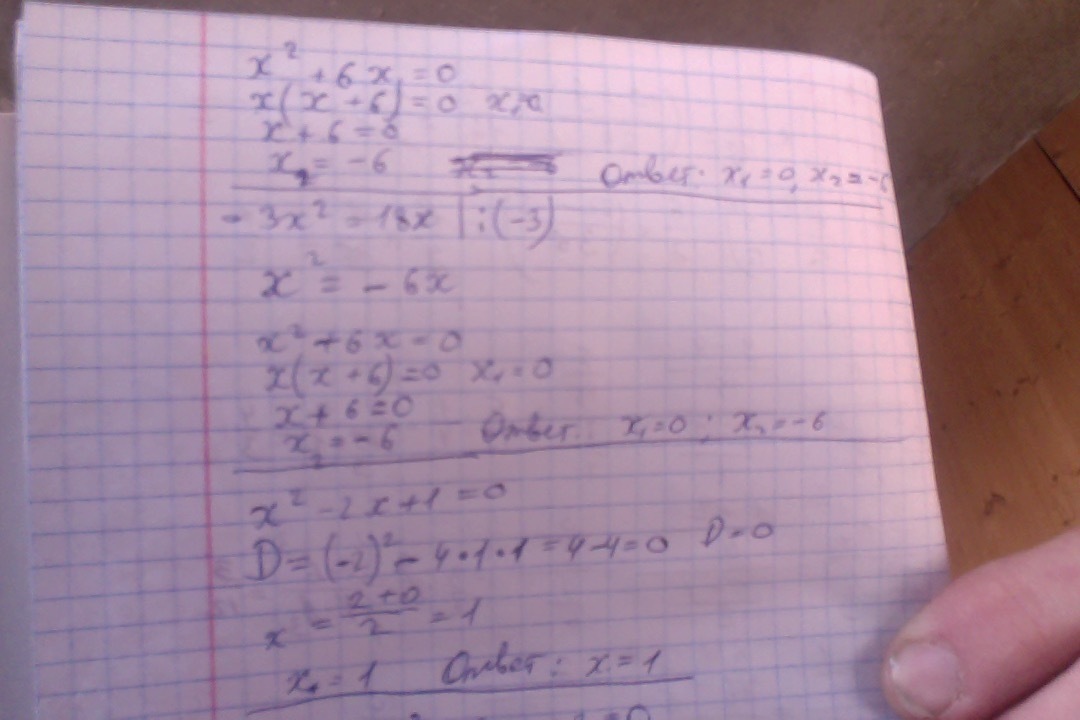 x² + 6x = 0
x(x + 6) = 0
x + 6 = 0
x₂ = -6 Ответ: x₁ = 0, x₂ = -6
- 3x² = 18x | : (-3)
x² = - 6x
x² + 6x = 0
x(x + 6) = 0 x₁ = 0
x + 6 = 0
x₂ = -6 Ответ x₁ = 0 ; x₂ = -6
x² - 2x + 1 = 0
D = (-2)² - 4 • 1 • 1 = 4 - 4 = 0 D = 0
x = (2 + 0)/2 = 1
x₁ = 1 Ответ: x = 1